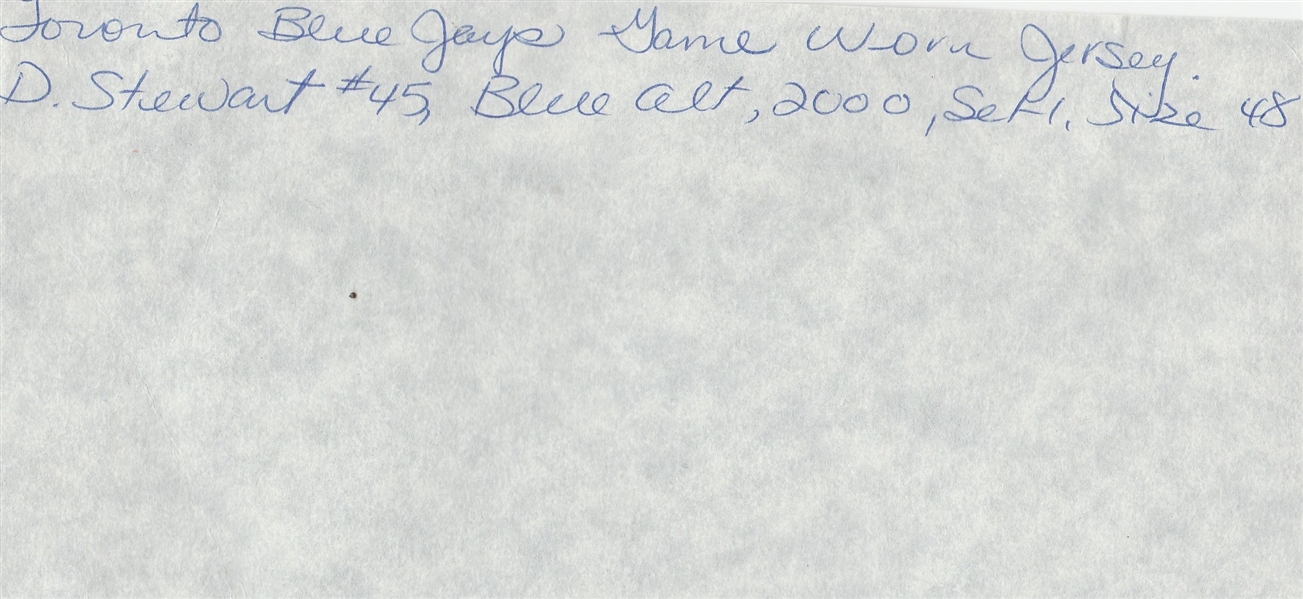 Toronto Blue Jays Game Worn Jersey.
D. Stewart #45, Blue Alt, 2000, Set 1, Size 48